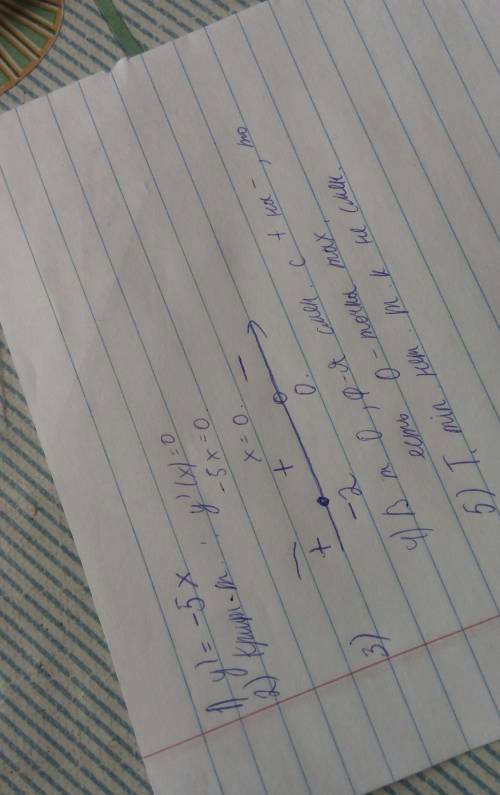 1) y' = -5x
2) Крит. т. : y'(x)=0
-5x=0
x=0.
+ + -
3) -2 0.
4) В т 0, ф-я смен. с + на -, то
есть 0 - точка max.
5) T. min нет. т. к не смен.